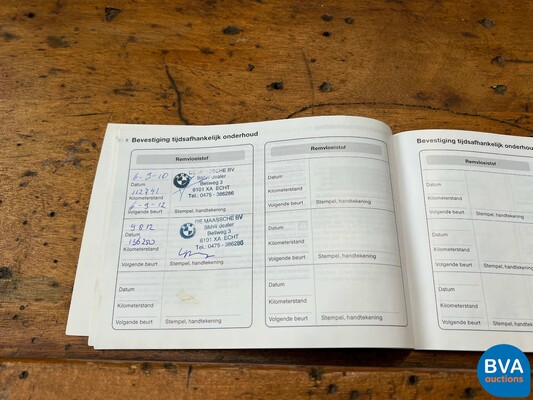 Bevestiging tijdsafhankelijk onderhoud
Remvloeistof
6-9-10
Datum
112741
Kilometerstand
6-9-12
Volgende beurt
MAASSCHE BV
BMW dealer
Bellweg 3
6101 XA ECHT
Tel.: 0475 - 386286
Stempel, handtekening
Datum
156250
Kilometerstand
Volgende beurt
DE MAASSCHE BV
BMW dealer
Bellweg 3
6101 XA ECHT
Tel.: 0475 - 386286
Stempel, handtekening
Datum
Kilometerstand
Volgende beurt
Stempel, handtekening
Remvloeistof
Datum
Kilometerstand
Volgende beurt
Stempel, handtekening
Datum
Kilometerstand
Volgende beurt
Stempel, handtekening
Datum
Kilometerstand
Volgende beurt
Stempel, handtekening
Bevestiging tijdsafhankelijk onderhoud
Remvloeistof
Datum
Kilometerstand
Volgende beurt
Stempel, handtekening
Datum
Kilometerstand
Volgende beurt
Stempel, handtekening
Datum
Kilometerstand
Volgende beurt
Stempel, handtekening
BVA
auctions